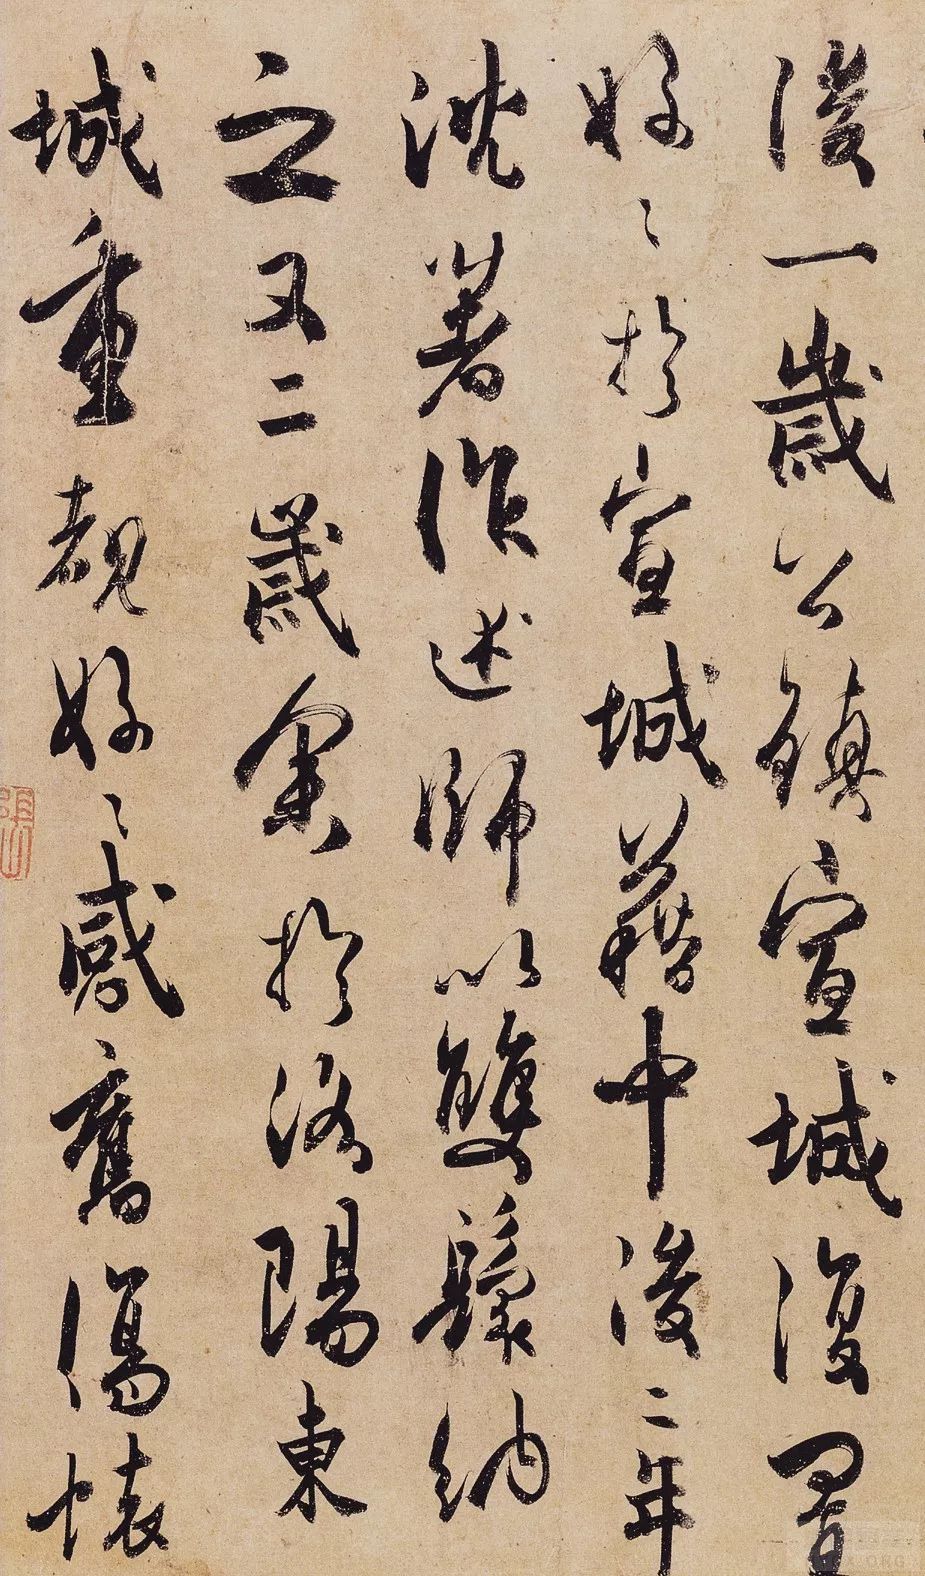 後一歲公鎮宣城復置
好〻於宣城藉中後二年
沈著作述師以雙鬟納
之又二歲余於洛陽東
城重覩好〻感舊傷懷